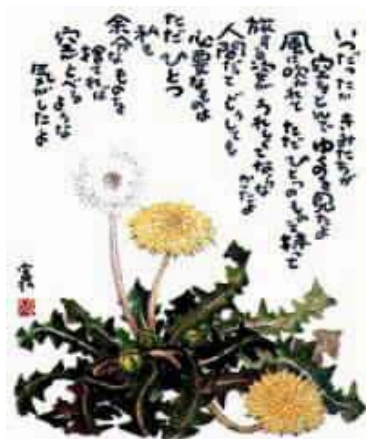 いつだったか きみたちが
空をとんで ゆくのを見たよ
風に吹かれて ただ ひとつのものを持って
旅する姿が うれしくてならなかったよ
人間だって どうしても
必要なものは
ただ ひとつ
私も
余分なものを
捨てれば
空がとべるような
気がしたよ
富弘